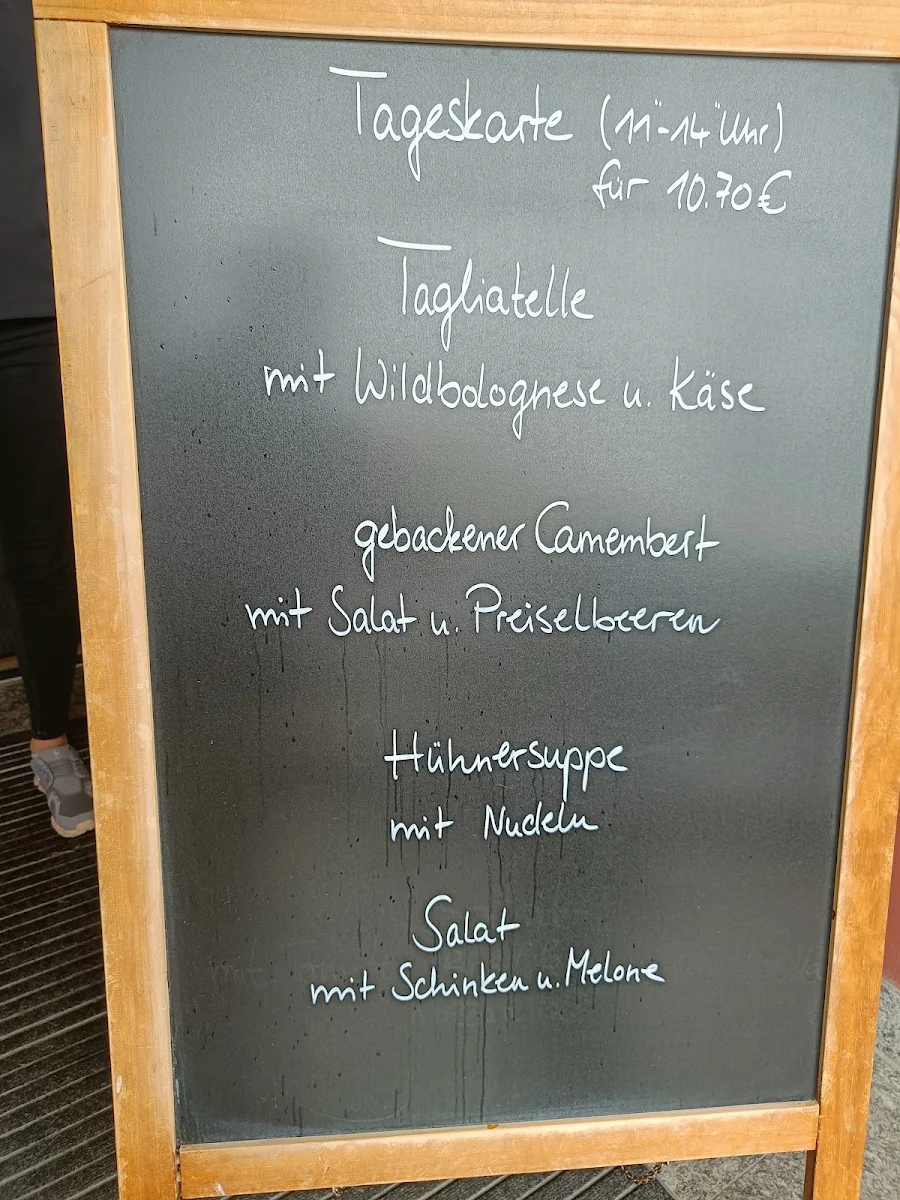 Tageskarte (11"-14" Uhr)
für 10.70€
Tagliatelle
mit Wildbolognese u. Käse
gebackener Camembert
mit Salat u. Preiselbeeren
Hühnersuppe
mit Nudeln
Salat
mit Schinken u. Melone